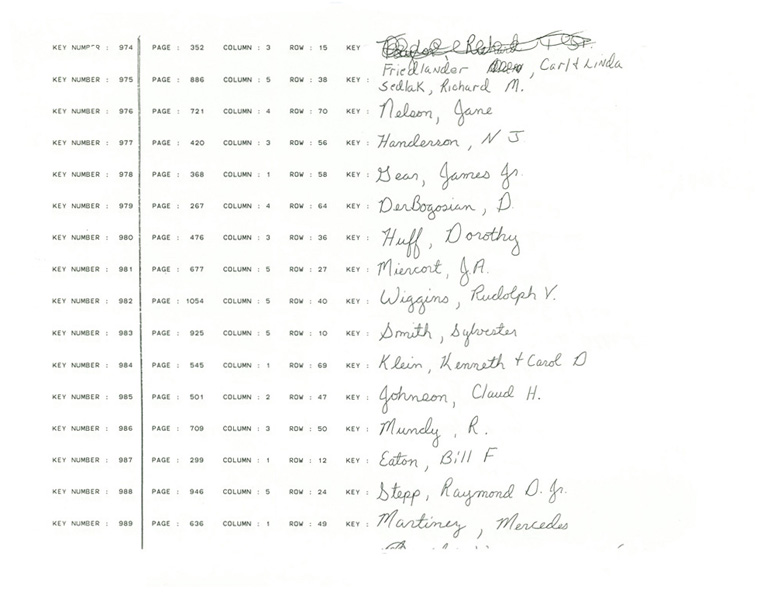 KEY NUMBER : 974 PAGE : 352 COLUMN : 3 ROW : 15 KEY :
Friedlander, Carl & Linda
KEY NUMBER : 975 PAGE : 886 COLUMN : 5 ROW : 38 KEY : Sedlak, Richard M.
KEY NUMBER : 976 PAGE : 721 COLUMN : 4 ROW : 70 KEY : Nelson, Jane
KEY NUMBER : 977 PAGE : 420 COLUMN : 3 ROW : 56 KEY : Handerson, N J
KEY NUMBER : 978 PAGE : 368 COLUMN : 1 ROW : 58 KEY : Gear, James Jr.
KEY NUMBER : 979 PAGE : 267 COLUMN : 4 ROW : 64 KEY : DerBogosian, D.
KEY NUMBER : 980 PAGE : 476 COLUMN : 3 ROW : 36 KEY : Huff, Dorothy
KEY NUMBER : 981 PAGE : 677 COLUMN : 5 ROW : 27 KEY : Miercort, J.A.
KEY NUMBER : 982 PAGE : 1054 COLUMN : 5 ROW : 40 KEY : Wiggins, Rudolph V.
KEY NUMBER : 983 PAGE : 925 COLUMN : 5 ROW : 10 KEY : Smith, Sylvester
KEY NUMBER : 984 PAGE : 545 COLUMN : 1 ROW : 69 KEY : Klein, Kenneth + Carol D
KEY NUMBER : 985 PAGE : 501 COLUMN : 2 ROW : 47 KEY : Johnson, Claud H.
KEY NUMBER : 986 PAGE : 709 COLUMN : 3 ROW : 50 KEY : Mundy, R.
KEY NUMBER : 987 PAGE : 299 COLUMN : 1 ROW : 12 KEY : Eaton, Bill F
KEY NUMBER : 988 PAGE : 946 COLUMN : 5 ROW : 24 KEY : Stepp, Raymond D. Jr.
KEY NUMBER : 989 PAGE : 636 COLUMN : 1 ROW : 49 KEY : Martinez, Mercedes